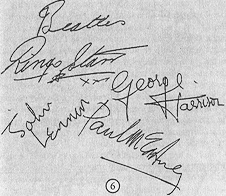 Beatles
Ringo Starr
xxx
George
Harrison
John
Lennon
Paul McCartney
6